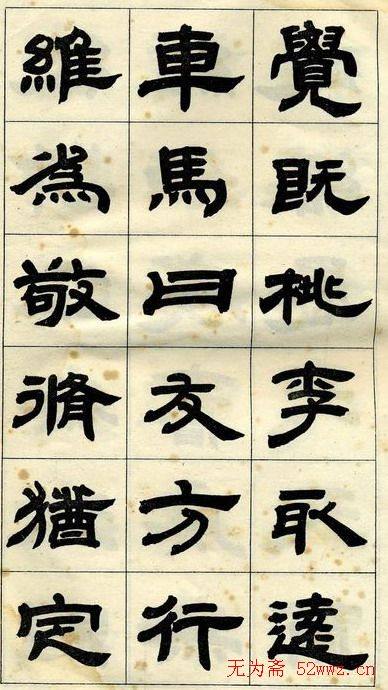 覺既桃李取達
車馬曰友方行
維為敬脩猶定
无为斋 52wwz.cn